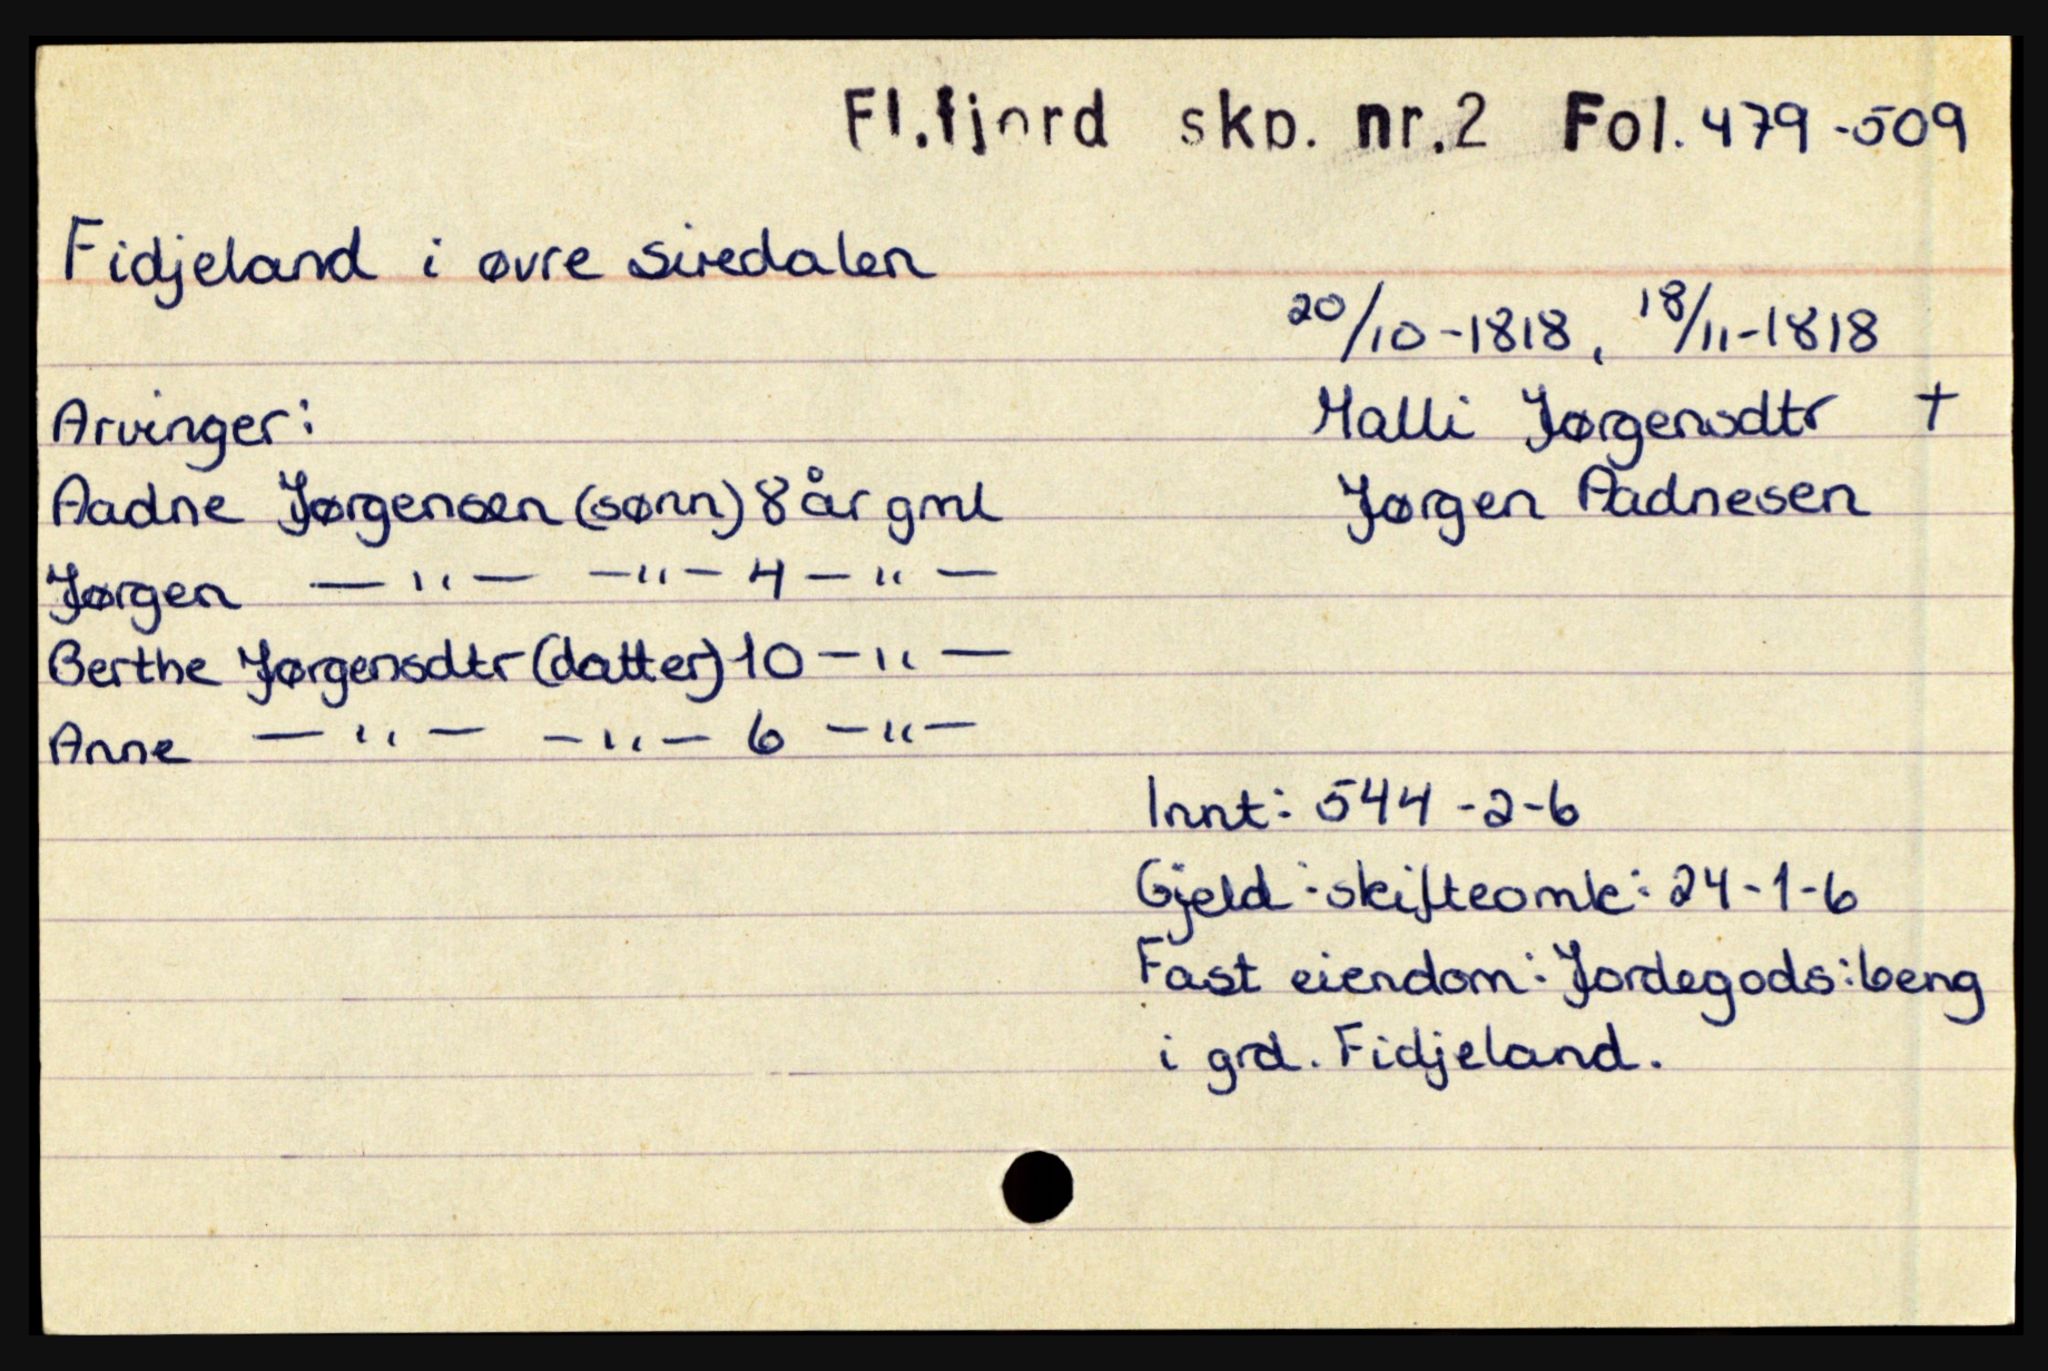 Fl.fjord skp. nr.2 Fol. 479-509
Fidjeland i øvre siredalen
20/10-1818, 18/11-1818
Arvinger:
Malli Jørgensdtr †
Aadne Jørgensen (sønn) 8 år gml
Jørgen Aadnesen
Jørgen —"— —"— 4 —"—
Berthe Jørgensdtr (datter) 10 —"—
Anne —"— —"— 6 —"—
Innt: 544-2-6
Gjeld: skifteomk: 24-1-6
Fast eiendom: Jordegods: beng
i grd. Fidjeland.